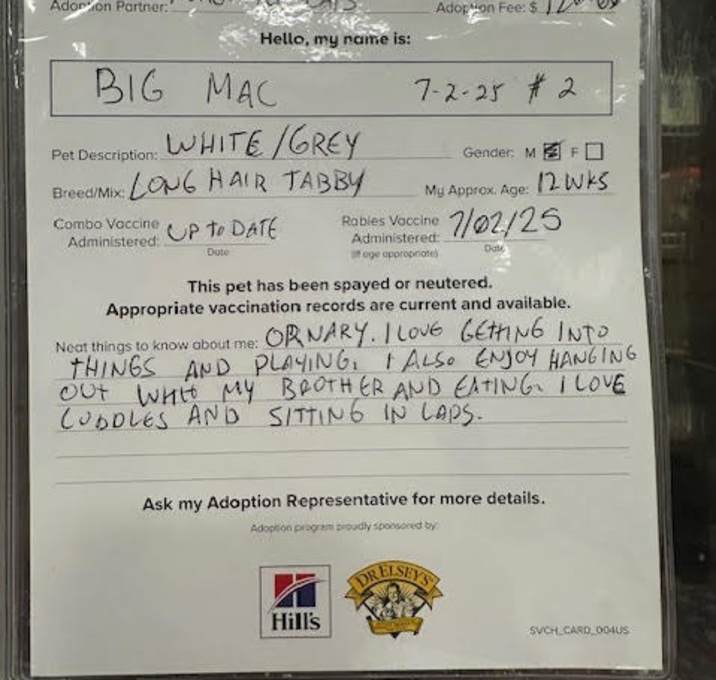 Adoption Partner: CATS Adoption Fee: $
Hello, my name is:
BIG MAC 7-2-25 # 2
Pet Description: WHITE/GREY Gender: M F
Breed/Mix: LONG HAIR TABBY My Approx. Age: 12 WKS
Combo Vaccine Administered: UP TO DATE Rabies Vaccine Administered: 7/02/25
Date (If age appropriate) Date
This pet has been spayed or neutered.
Appropriate vaccination records are current and available.
Neat things to know about me: ORNARY. I LOVE GETTING INTO
THINGS AND PLAYING. I ALSO ENJOY HANGING
OUT WITH MY BROTHER AND EATING. I LOVE
CUDDLES AND SITTING IN LAPS.
Ask my Adoption Representative for more details.
Adoption program proudly sponsored by:
Hill's DR ELSEY'S
SVCH_CARD_004US